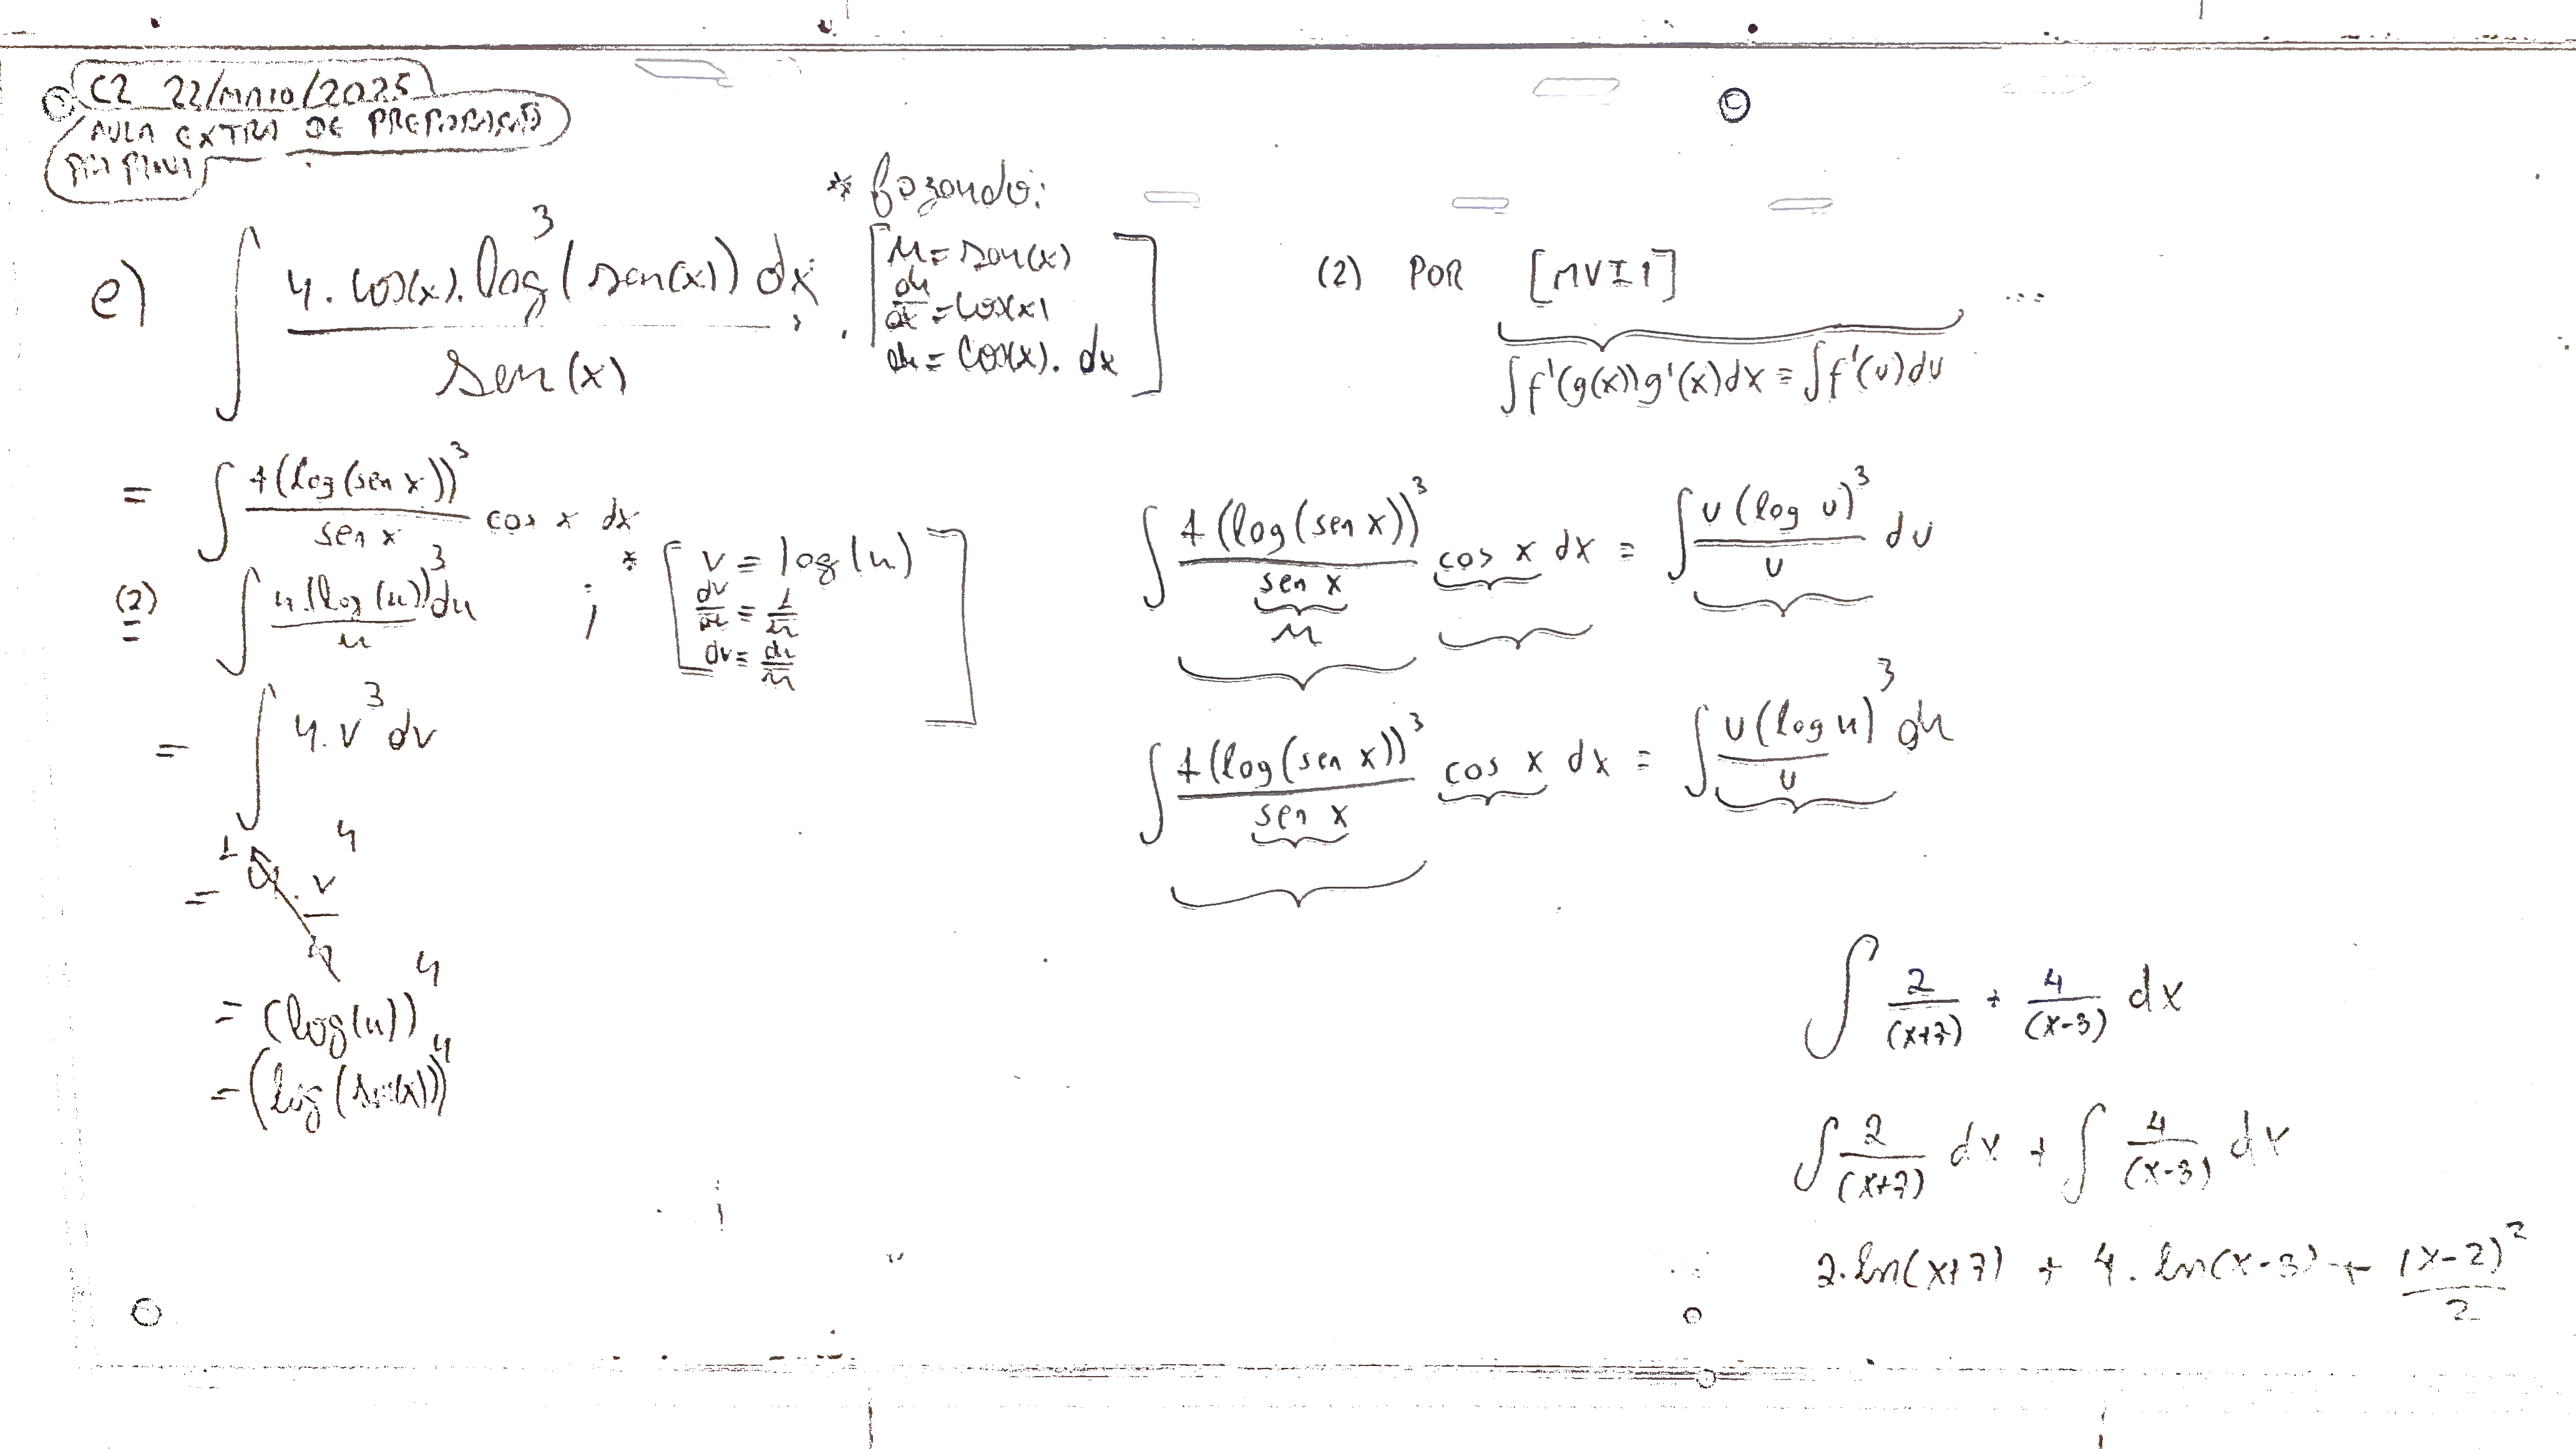 C2 22/MAIO/2025
AULA EXTRA DE PREPARAÇÃO
PRA PROVA
* fazendo:
e) ∫ 4·cos(x)·log³(sen(x)) / sen(x) dx; [u = sen(x)
du/dx = cos(x)
du = cos(x)·dx]
= ∫ 4(log(sen x))³ / sen x cos x dx
(2)= ∫ 4·(log(u))³ / u du ; * [v = log(u)
dv/du = 1/u
dv = du/u]
= ∫ 4·v³ dv
= 4·v⁴/4
= (log(u))⁴
= (log(sen(x)))⁴
(2) POR [MVI1] ...
∫f'(g(x))g'(x)dx = ∫f'(u)du
∫ 4(log(sen x))³ / sen x cos x dx = ∫ 4(log u)³ / u du
u
∫ 4(log(sen x))³ / sen x cos x dx = ∫ 4(log u)³ / u du
∫ 2/(x+7) + 4/(x-3) dx
∫ 2/(x+7) dx + ∫ 4/(x-3) dx
2·ln(x+7) + 4·ln(x-3) + (x-2)²/2